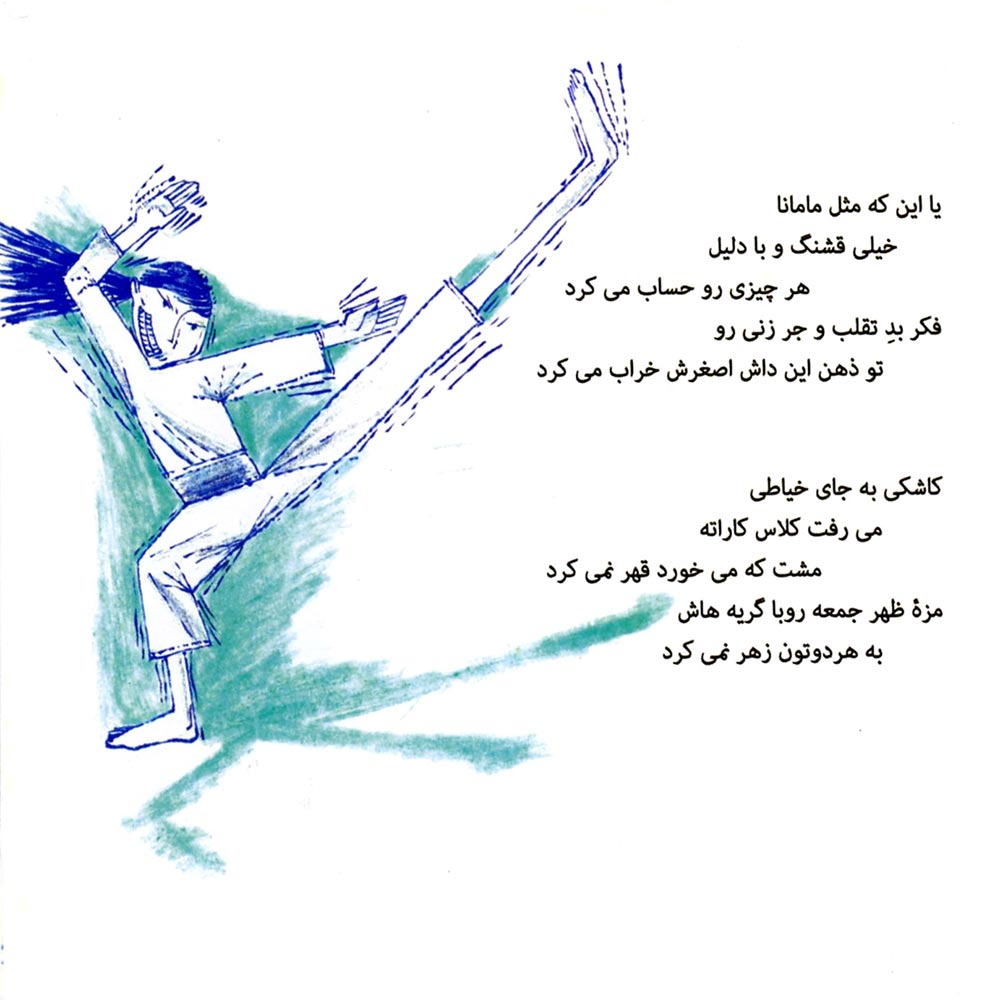 یا این که مثل مامانا
خیلی قشنگ و با دلیل
هر چیزی رو حساب می کرد
فکر بدِ تقلب و جر زنی رو
تو ذهن این داش اصغرش خراب می کرد
کاشکی به جای خیاطی
می رفت کلاس کاراته
مشت که می خورد قهر نمی کرد
مزهٔ ظهر جمعه روبا گریه هاش
به هردوتون زهر نمی کرد